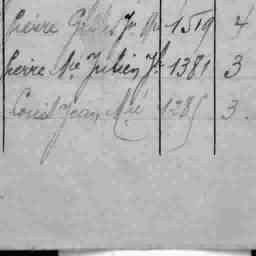 Pierre G Jn Me 1519 4
Pierre Me Julien Jh 1381 3
Louis Jean Mie 1285 3.